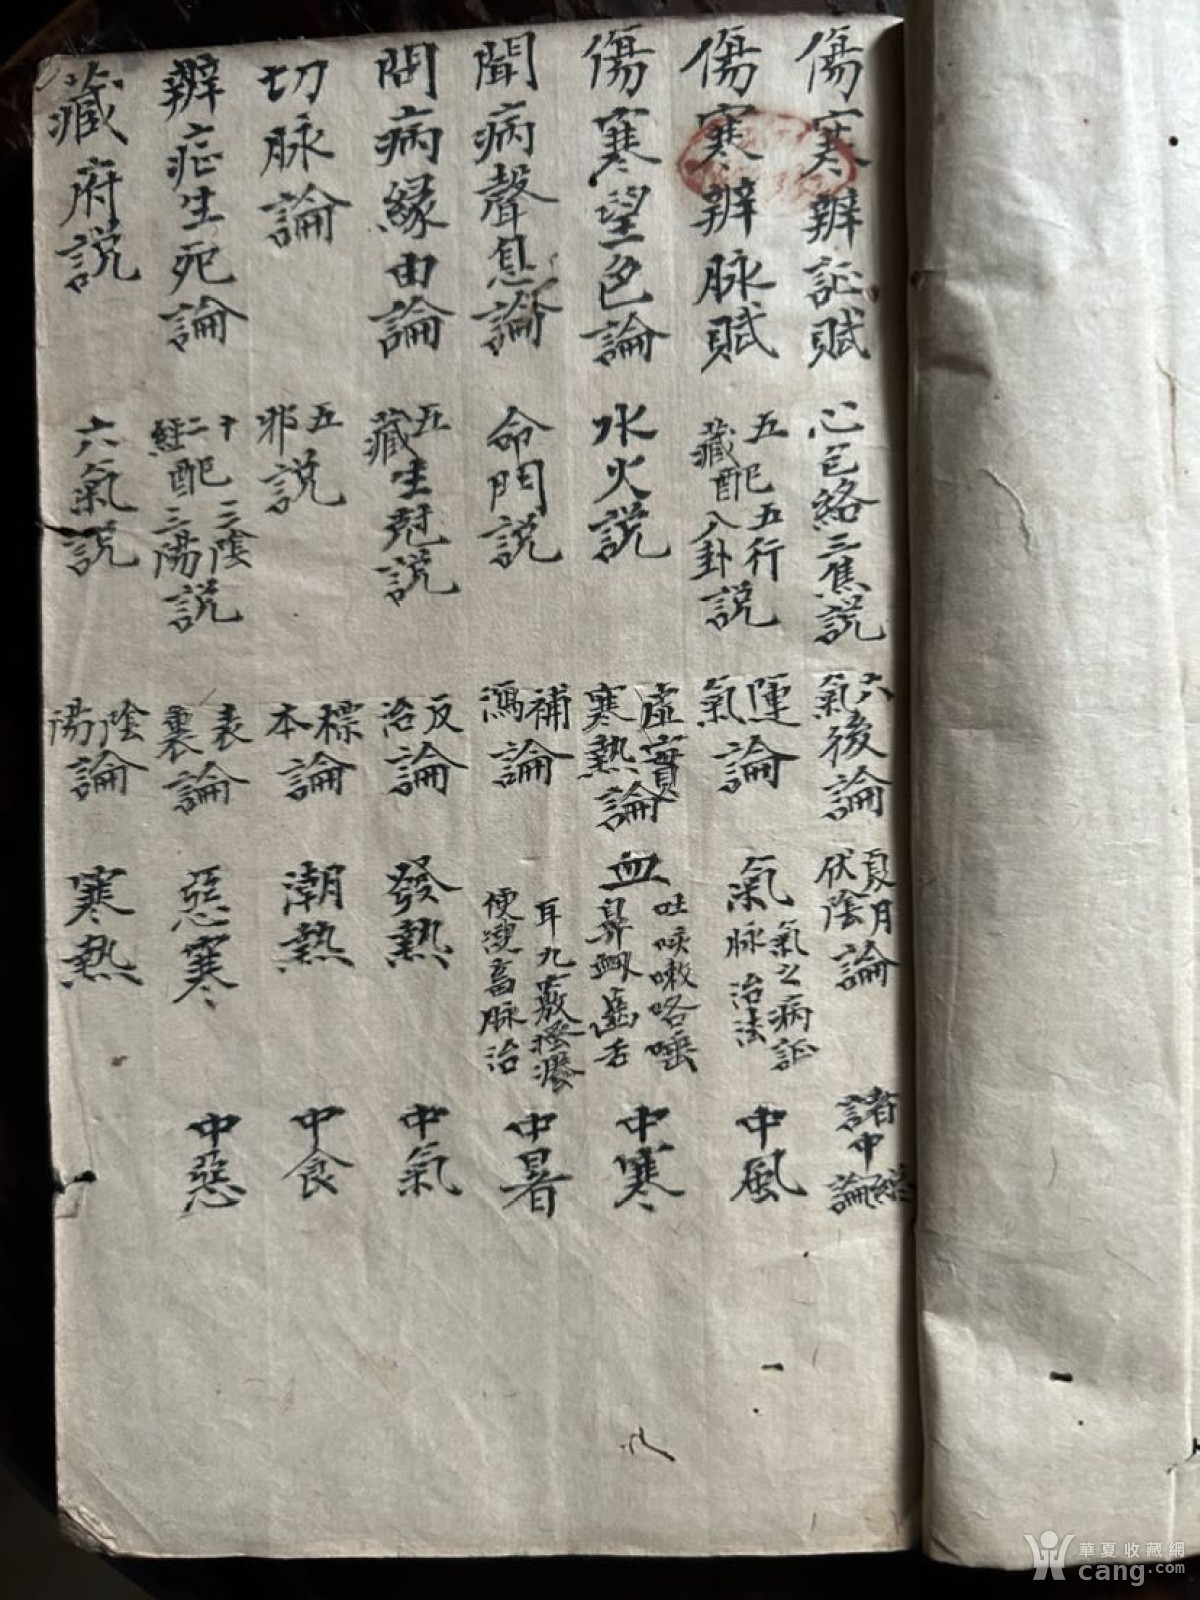 傷寒辨証賦
傷寒辨脉賦
傷寒望色論
聞病聲息論
問病緣由論
切脉論
辨症生死論
藏府説
心包絡三焦説
五藏配五行八卦説
水火説
命門説
五藏生尅説
五邪説
十二經配三陰三陽説
六氣説
六氣後論
運氣論
虛實寒熱論
補瀉論
反治論
標本論
表裏論
陰陽論
夏月伏陰論
氣 氣之病証脉治法
血 吐咳嗽咯唾鼻衂齒舌
耳九竅便溲畜脉治
發熱
潮熱
惡寒
寒熱
諸中總論
中風
中寒
中暑
中氣
中食
中惡
華夏收藏網
cang.com